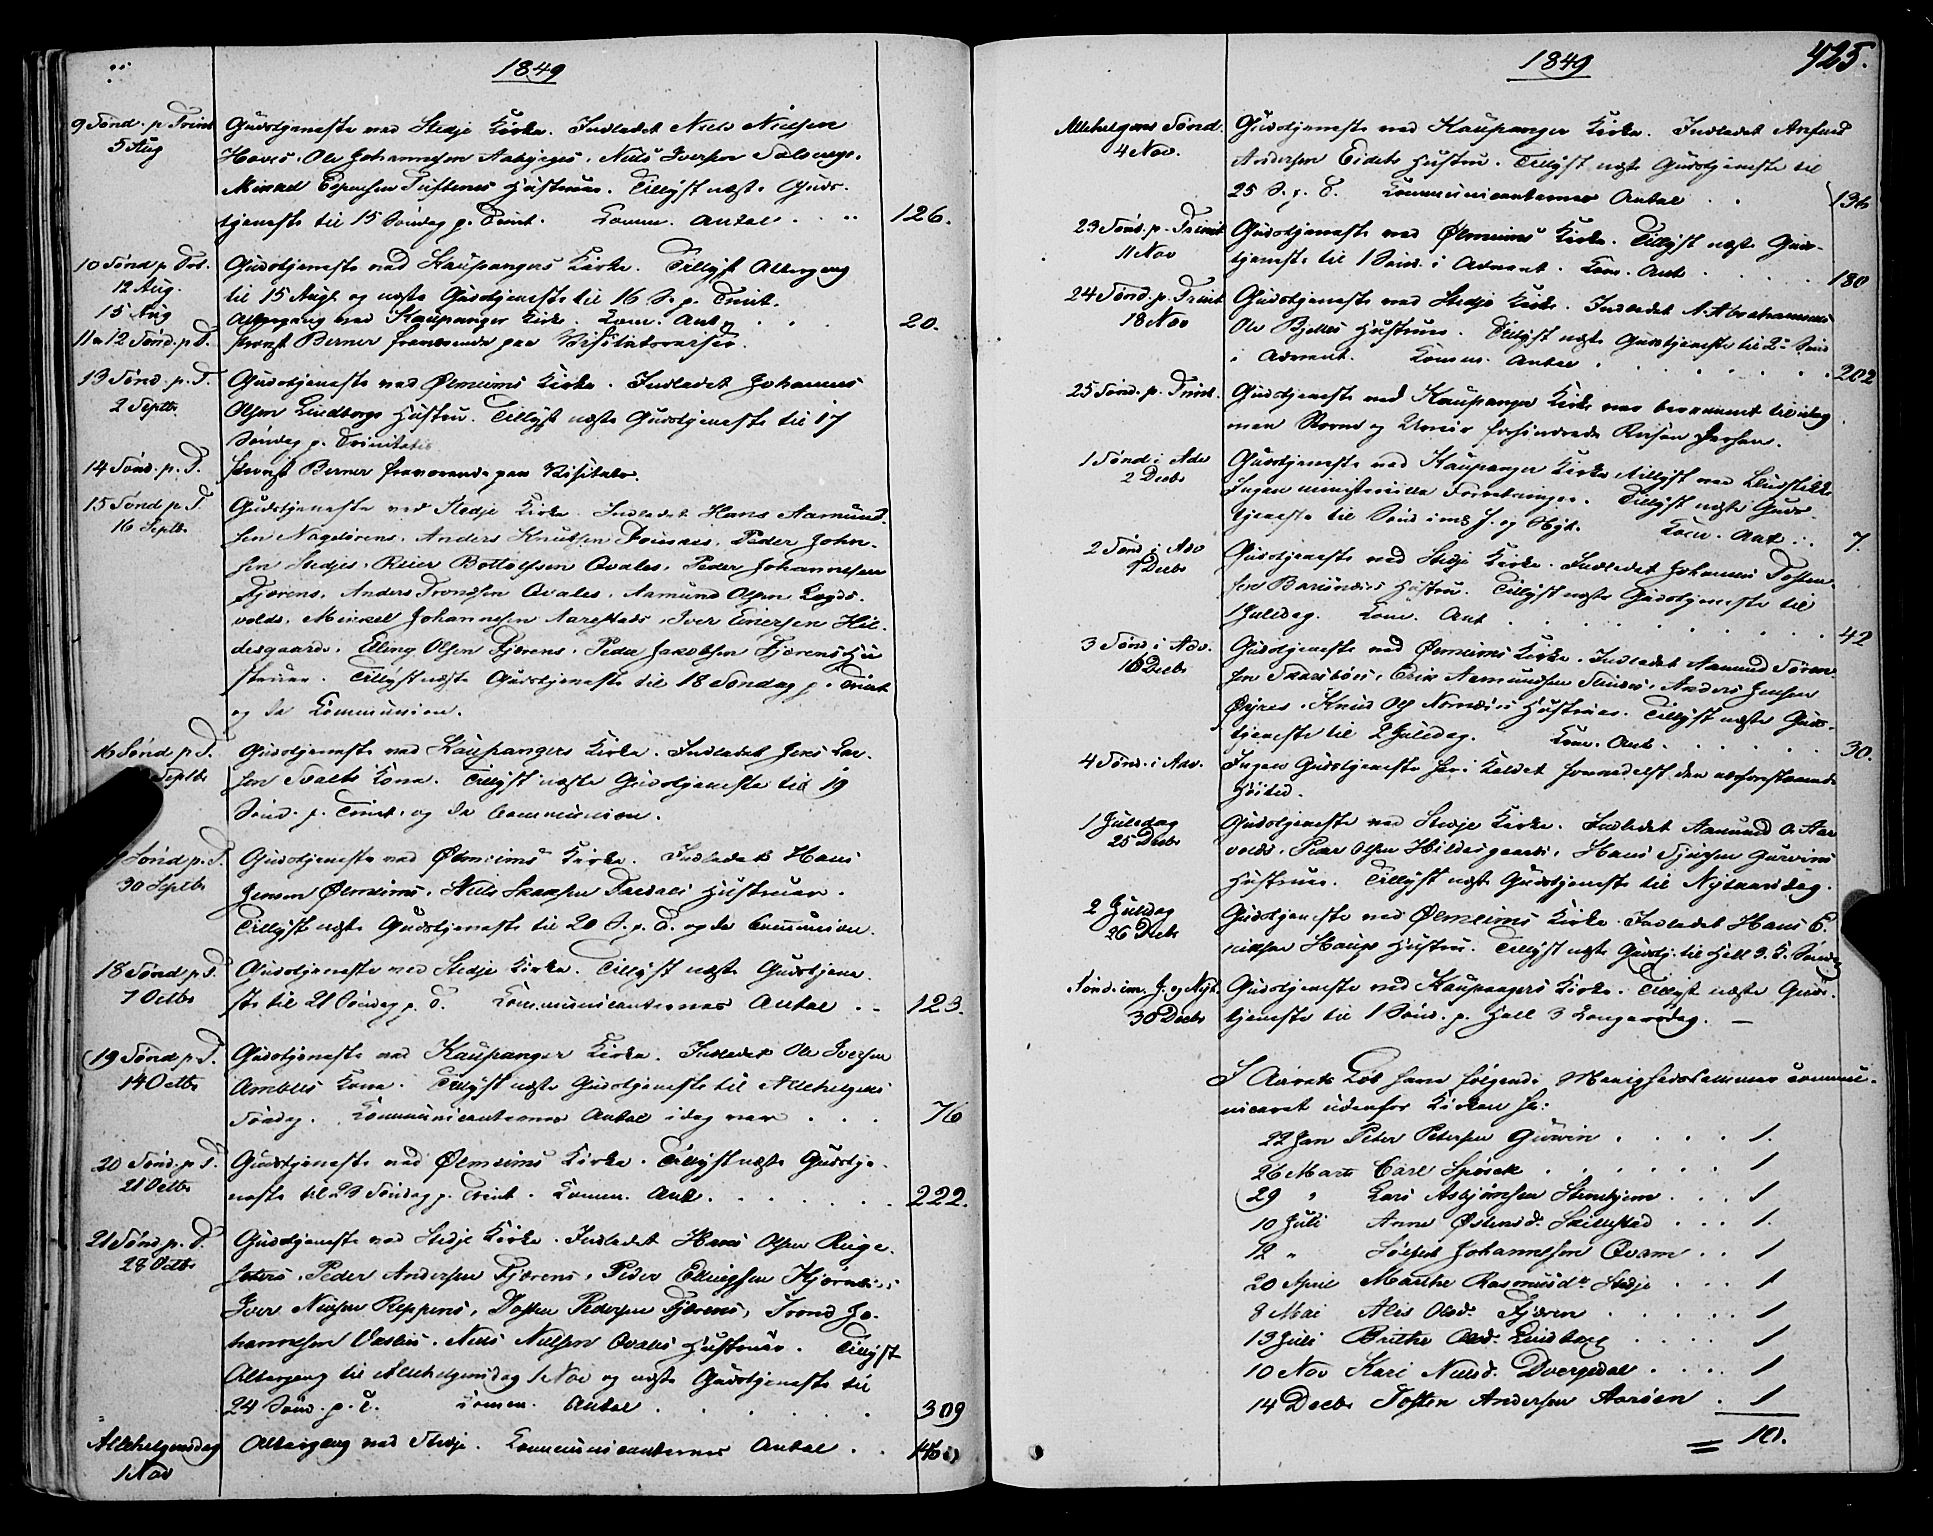 1849
9 Sønd. p Trinit
5 Aug
Gudstjeneste ved Stedje Kirke. Indledet Niels Nielsen
Hoves, Ole Johannesen Aabjeges, Niels Iversen
Hustruer. Tillyst næste Guds-
tjeneste til 15 Søndag p. Trinit. Komm. Antal . . 126.
10 Sønd p Tri.
12 Aug.
Gudstjeneste ved Kaupangers Kirke. Tillyst Altergang
til 15 Augt og næste Gudstjeneste til 16 S. p. Trinit.
15 Aug
Altergang ved Kaupanger Kirke. Kom. Ant. . . . 20.
11 & 12 Sønd. p T.
Provst Berner fraværende paa Visitatsreiser.
13 Sønd. p. T.
2 Septbr
Gudstjeneste ved Ølmeims Kirke. Indledet Johannes
Olsen Lindborgs Hustru. Tillyst næste Gudstjeneste til 17
Søndag p. Trinitatis
14 Sønd. p. T.
Provst Berner fraværende paa Visitats.
15 Sønd p. T.
16 Septbr
Gudstjeneste ved Stedje Kirke. Indledet Hans Aamund-
sen Nagelørens, Anders Knutsen Peder John-
sen Stedjes, Reier Bottolfsen Qvales, Peder Johannesen
Fjærens, Anders Trondsen Qvales, Aamund Olsen Logds-
volds, Mikkel Johannesen Aarestads, Iver Einersen Hil-
desgaards, Elling Olsen Fjærens, Peder Jakobsen Fjærens Hu-
struer. Tillyst næste Gudstjeneste til 18 Søndag p. Trinit
og da Communion.
16 Sønd p T.
Septbr
Gudstjeneste ved Kaupangers Kirke. Indledet Jens Lar-
sen Kone. Tillyst næste Gudstjeneste til 19
Sønd. p. Trinit. og da Communion.
Sønd p. T.
30 Septbr
Gudstjeneste ved Ølmeims Kirke. Indledet Hans
Jensen Ølmeims, Niels Hustruer.
Tillyst næste Gudstjeneste til 20 S. p. T. og da Communion.
18 Sønd p T.
7 Octbr
Gudstjeneste ved Stedje Kirke. Tillyst næste Gudstjene-
ste til 21 Søndag p. T. Kommunicanternes Antal . . 123.
19 Sønd p. T.
14 Octbr
Gudstjeneste ved Kaupanger Kirke. Indledet Ole Iversen
Ambles Kone. Tillyst næste Gudstjeneste til Allehelgens
Søndag. Kommunicanternes Antal idag var . . . 76
20 Sønd. p. T.
21 Octbr
Gudstjeneste ved Ølmeims Kirke. Tillyst næste Gudstje-
neste til 23 Søndag p. Trinit. Komm. Ant. . . . . 222.
21 Sønd. p. T.
28 Octbr
Gudstjeneste ved Stedje Kirke. Indledet Hans Olsen
Peder Andersen Fjærens, Peder Ellingsen
Iver Nielsen Reppens, Tosten Pedersen Fjærens, Trond Jo-
hannesen Niels Nielsen Qvales Hustruer. Tillyst
Altergang til Allehelgensdag 1 Nov og næste Gudstjeneste til
24 Sønd. p. T. Komm. Antal . . . . . 309
Allehelgensdag
1 Nov
Altergang ved Stedje. Kommunicanternes Antal . .
1849
425.
Allehelgens Sønd.
4 Nov.
Gudstjeneste ved Kaupanger Kirke. Indledet
Andersen Eides Hustru. Tillyst næste Gudstjeneste til
25 S. p. T. Kommunicanternes Antal . . 136
23 Sønd. p. Trinit
11 Nov
Gudstjeneste ved Ølmeims Kirke. Tillyst næste Guds-
tjeneste til 1 Sønd. i Advent. Kom. Ant. . . . . 180
24 Sønd. p. Trinit
18 Nov
Gudstjeneste ved Stedje Kirke. Indledet
Ole Hustruer. Tillyst næste Gudstjeneste til 2 Sønd
i Advent. Komm. Antal . . . . . . . 202
25 Sønd. p. Trinit.
Gudstjeneste ved Kaupanger Kirke var berammet til idag
men Storm og Uveir forhindrede Reisen
1 Sønd i Adv
2 Decbr
Gudstjeneste ved Kaupanger Kirke tillyst ved
Ingen ministerielle Forretninger. Tillyst næste Guds-
tjeneste til Sønd imel. J. og Nyt. Kom. Ant. . . 7.
2 Sønd i Adv
9 Decbr
Gudstjeneste ved Stedje Kirke. Indledet Johannes Tosten-
sen Hustru. Tillyst næste Gudstjeneste til
1 Juledag. Kom. Ant. . . . . . . . 42
3 Sønd i Adv.
16 Decbr
Gudstjeneste ved Ølmeims Kirke. Indledet Aamund Søren-
sen Erik Aamundsen Anders Jensen
Øvres, Knud Ols. Hustruer. Tillyst næste Guds-
tjeneste til 2 Juledag. Kom. Ant. . . . . . 30.
4 Sønd. i Adv.
Ingen Gudstjeneste her i Kaldet formedelst den nærforestaaende
Høitid.
1 Juledag
25 Decbr
Gudstjeneste ved Stedje Kirke. Indledet Aamund O. Aar-
volds, Peder Olsen Hildesgaards, Hans Gurvins
Hustruer. Tillyst næste Gudstjeneste til Nytaarsdag.
2 Juledag
26 Decbr
Gudstjeneste ved Ølmeims Kirke. Indledet Hans E-
riksen Hauge Hustru. Tillyst næste Gudstj. til Hell. 3 K. Søndag
Sønd. im. J. og Nyt.
30 Decbr
Gudstjeneste ved Kaupangers Kirke. Tillyst næste Guds-
tjeneste til 1 Sønd. p. Hell 3 Kongersdag. —
I Aarets Løb have følgende Menighedslemmer commu-
niceret udenfor Kirken
22 Jan Peter Petersen Gurvin . . . . 1.
26 Marts Carl . . . . . . 1
29 " Lars Asbjørnsen Stenhjem . . . 1
10 Juli Anne Østensd. Skillestad . . . 1.
12 " Johannesson Qvam . . 1
20 April Marthe Rasmusdr Stedje . . . 1
8 Mai Alis Olsd. Fjæren . . . . . 1
13 Juli Brithe Olsd. Lindborg . . . . 1
10 Nov Kari Nielsd. Dvergedal . . . . 1
14 Decbr Tosten Andersen Aarøen . 1
= 10.